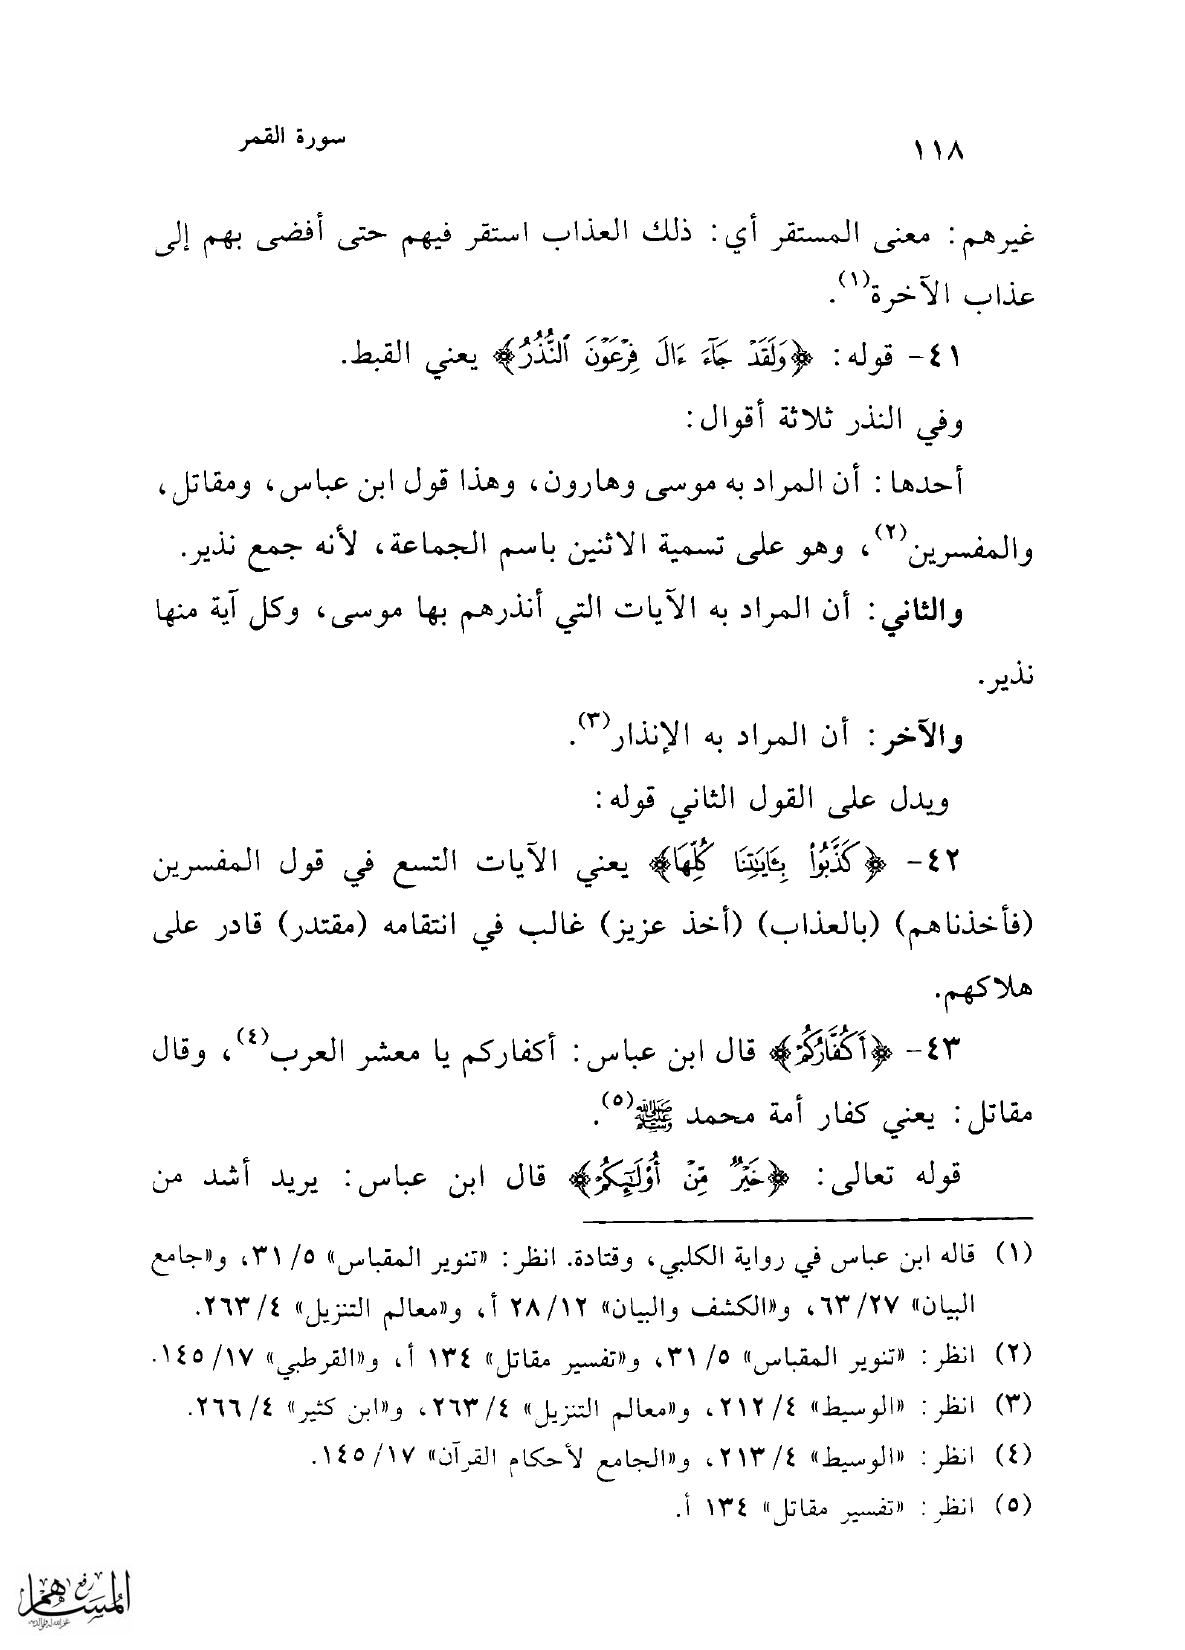 ١١٨
سورة القمر
غيرهم: معنى المستقر أي: ذلك العذاب استقر فيهم حتى أفضى بهم إلى
عذاب الآخرة(١).
٤١- قوله: ﴿وَلَقَدْ جَآءَ ءَالَ فِرْعَوْنَ ٱلنُّذُرُ﴾ يعني القبط.
وفي النذر ثلاثة أقوال:
أحدها: أن المراد به موسى وهارون، وهذا قول ابن عباس، ومقاتل،
والمفسرين(٢)، وهو على تسمية الاثنين باسم الجماعة، لأنه جمع نذير.
والثاني: أن المراد به الآيات التي أنذرهم بها موسى، وكل آية منها
نذير.
والآخر: أن المراد به الإنذار(٣).
ويدل على القول الثاني قوله:
٤٢- ﴿كَذَّبُوا۟ بِـَٔايَـٰتِنَا كُلِّهَا﴾ يعني الآيات التسع في قول المفسرين
(فأخذناهم) (بالعذاب) (أخذ عزيز) غالب في انتقامه (مقتدر) قادر على
هلاكهم.
٤٣- ﴿أَكُفَّارُكُمْ﴾ قال ابن عباس: أكفاركم يا معشر العرب(٤)، وقال
مقاتل: يعني كفار أمة محمد ﷺ(٥).
قوله تعالى: ﴿خَيْرٌ مِّنْ أُو۟لَـٰٓئِكُمْ﴾ قال ابن عباس: يريد أشد من
(١) قاله ابن عباس في رواية الكلبي، وقتادة. انظر: «تنوير المقباس» ٥/ ٣١، و«جامع
البيان» ٢٧/ ٦٣، و«الكشف والبيان» ١٢/ ٢٨ أ، و«معالم التنزيل» ٤/ ٢٦٣.
(٢) انظر: «تنوير المقباس» ٥/ ٣١، و«تفسير مقاتل» ١٣٤ أ، و«القرطبي» ١٧/ ١٤٥.
(٣) انظر: «الوسيط» ٤/ ٢١٢، و«معالم التنزيل» ٤/ ٢٦٣، و«ابن كثير» ٤/ ٢٦٦.
(٤) انظر: «الوسيط» ٤/ ٢١٣، و«الجامع لأحكام القرآن» ١٧/ ١٤٥.
(٥) انظر: «تفسير مقاتل» ١٣٤ أ.